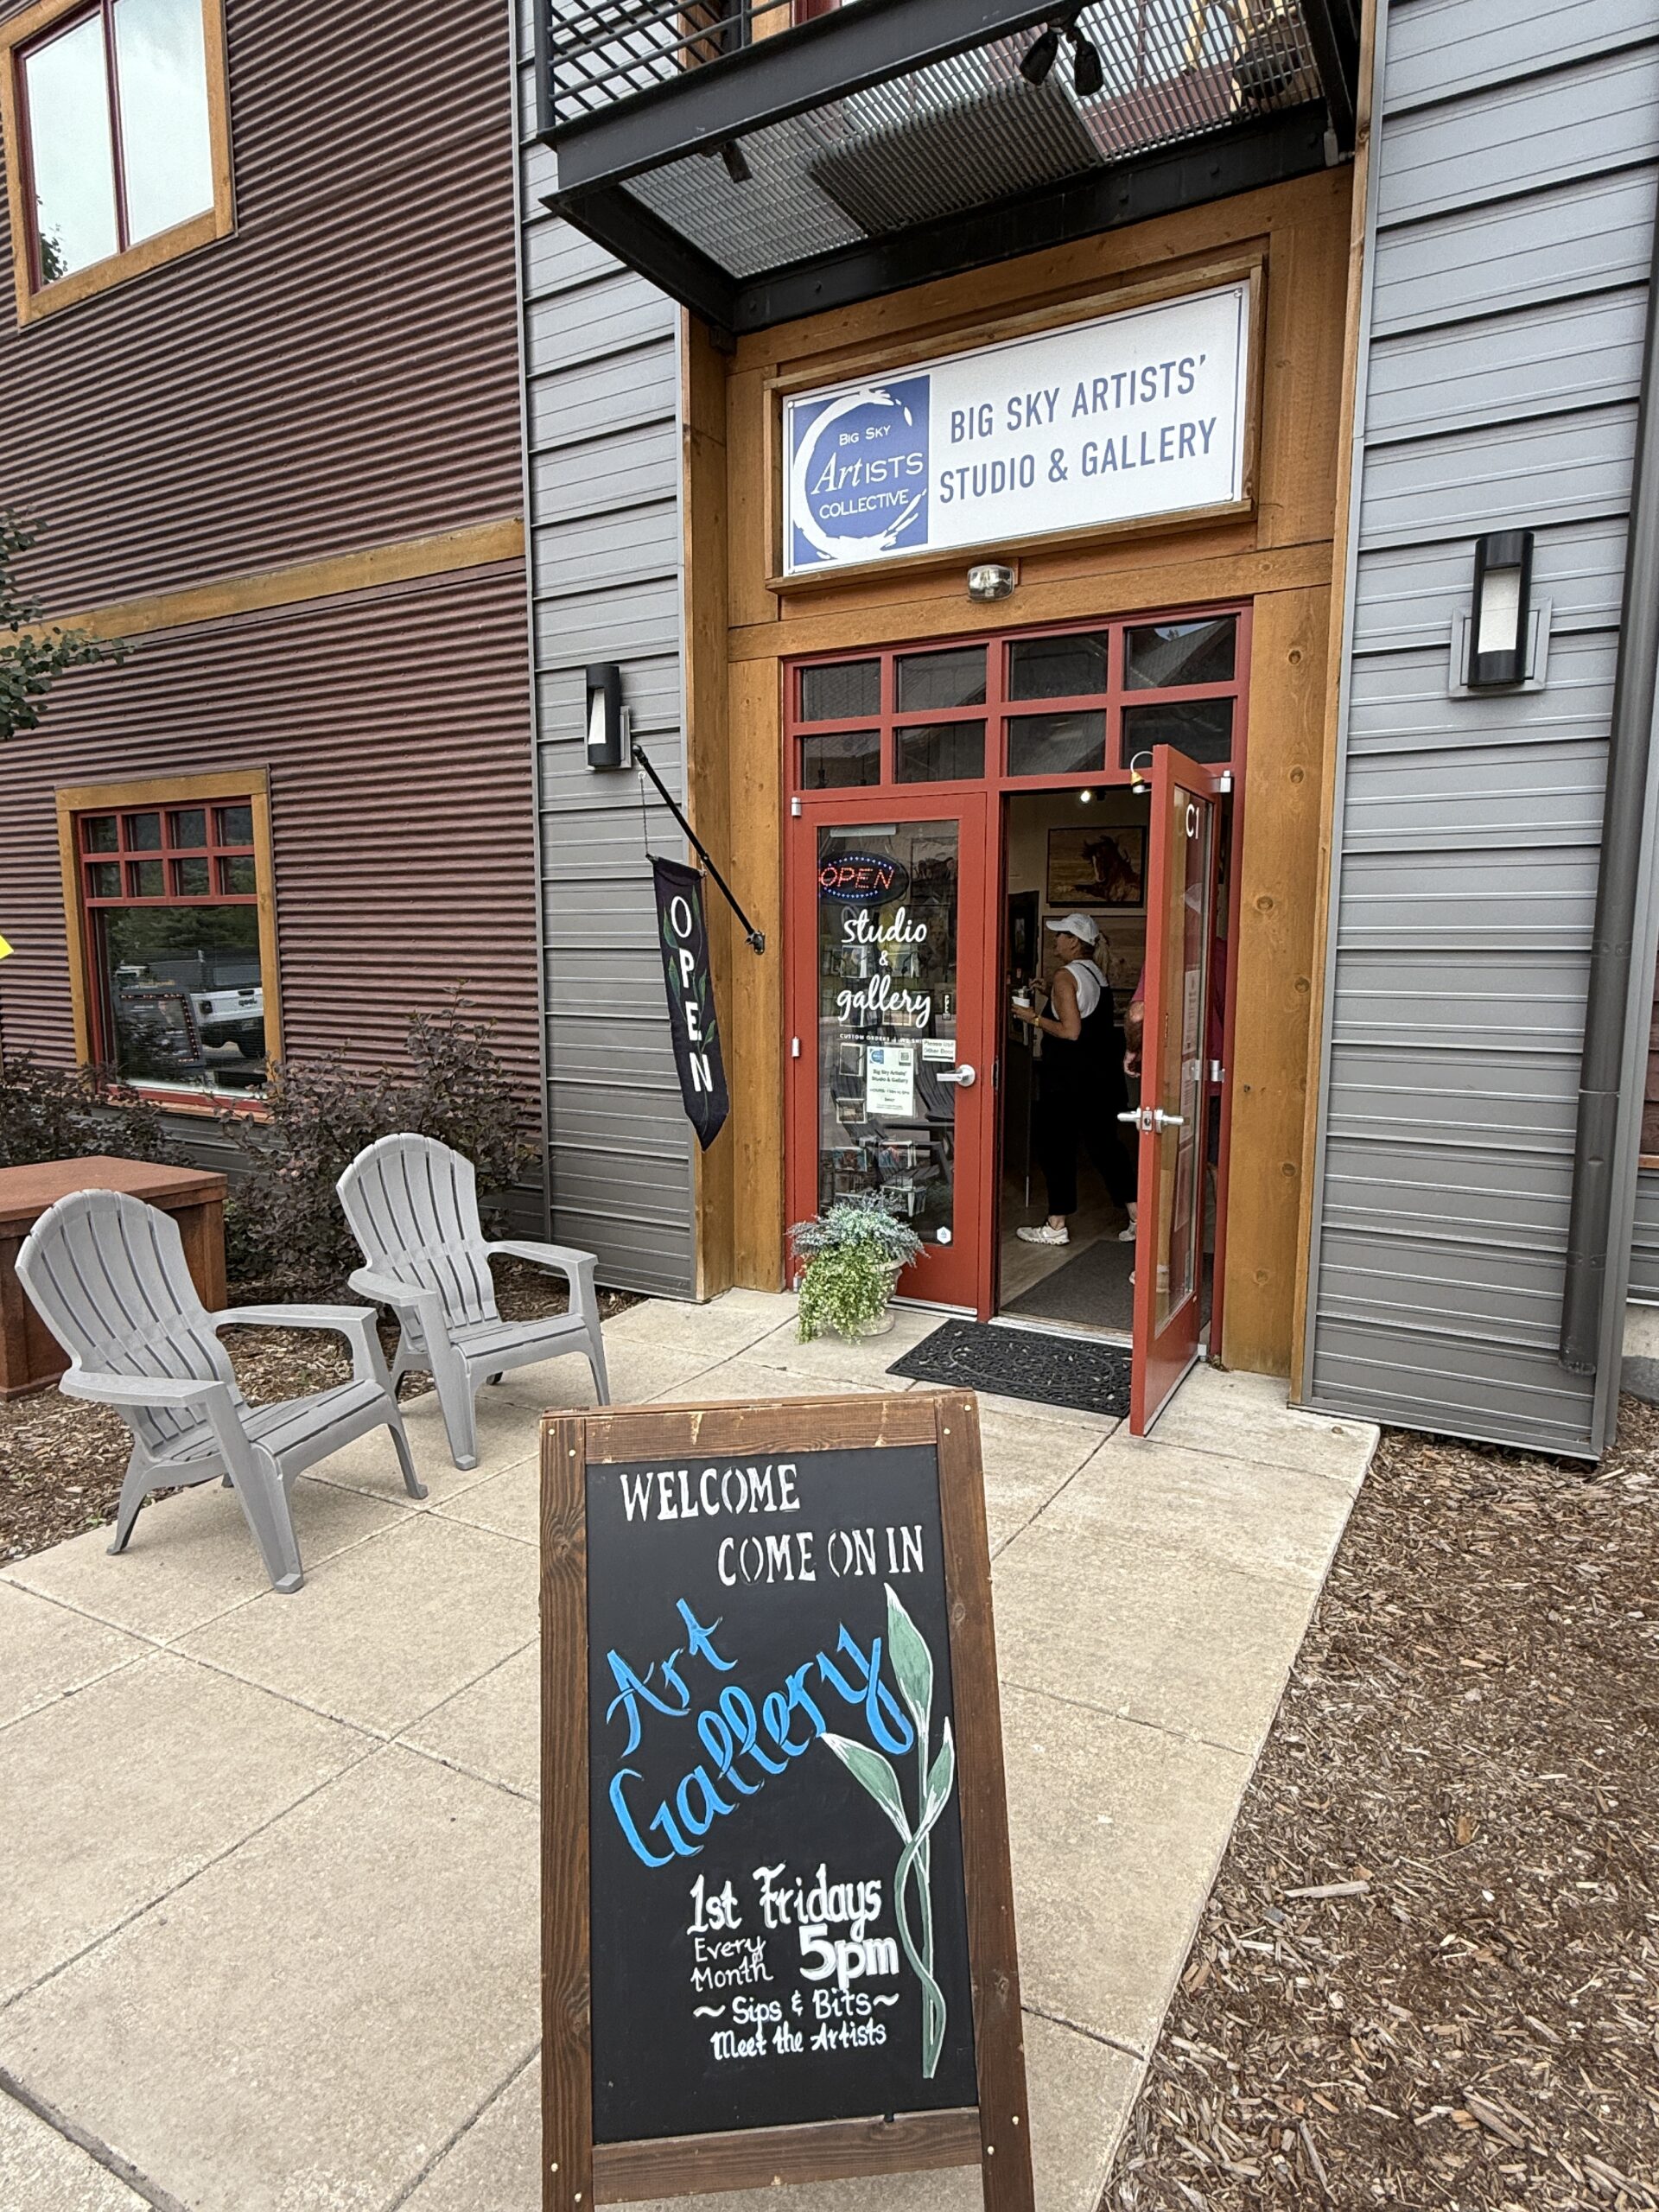 BIG SKY
ArtISTS
COLLECTIVE
BIG SKY ARTISTS'
STUDIO & GALLERY
C1
OPEN
OPEN
studio
&
gallery
CUSTOM ORDERS
Please Use
Other Door
Big Sky Artists'
Studio & Gallery
Jeep
WELCOME
COME ON IN
Art
Gallery
1st Fridays
Every
Month
5pm
~ Sips & Bits ~
Meet the Artists